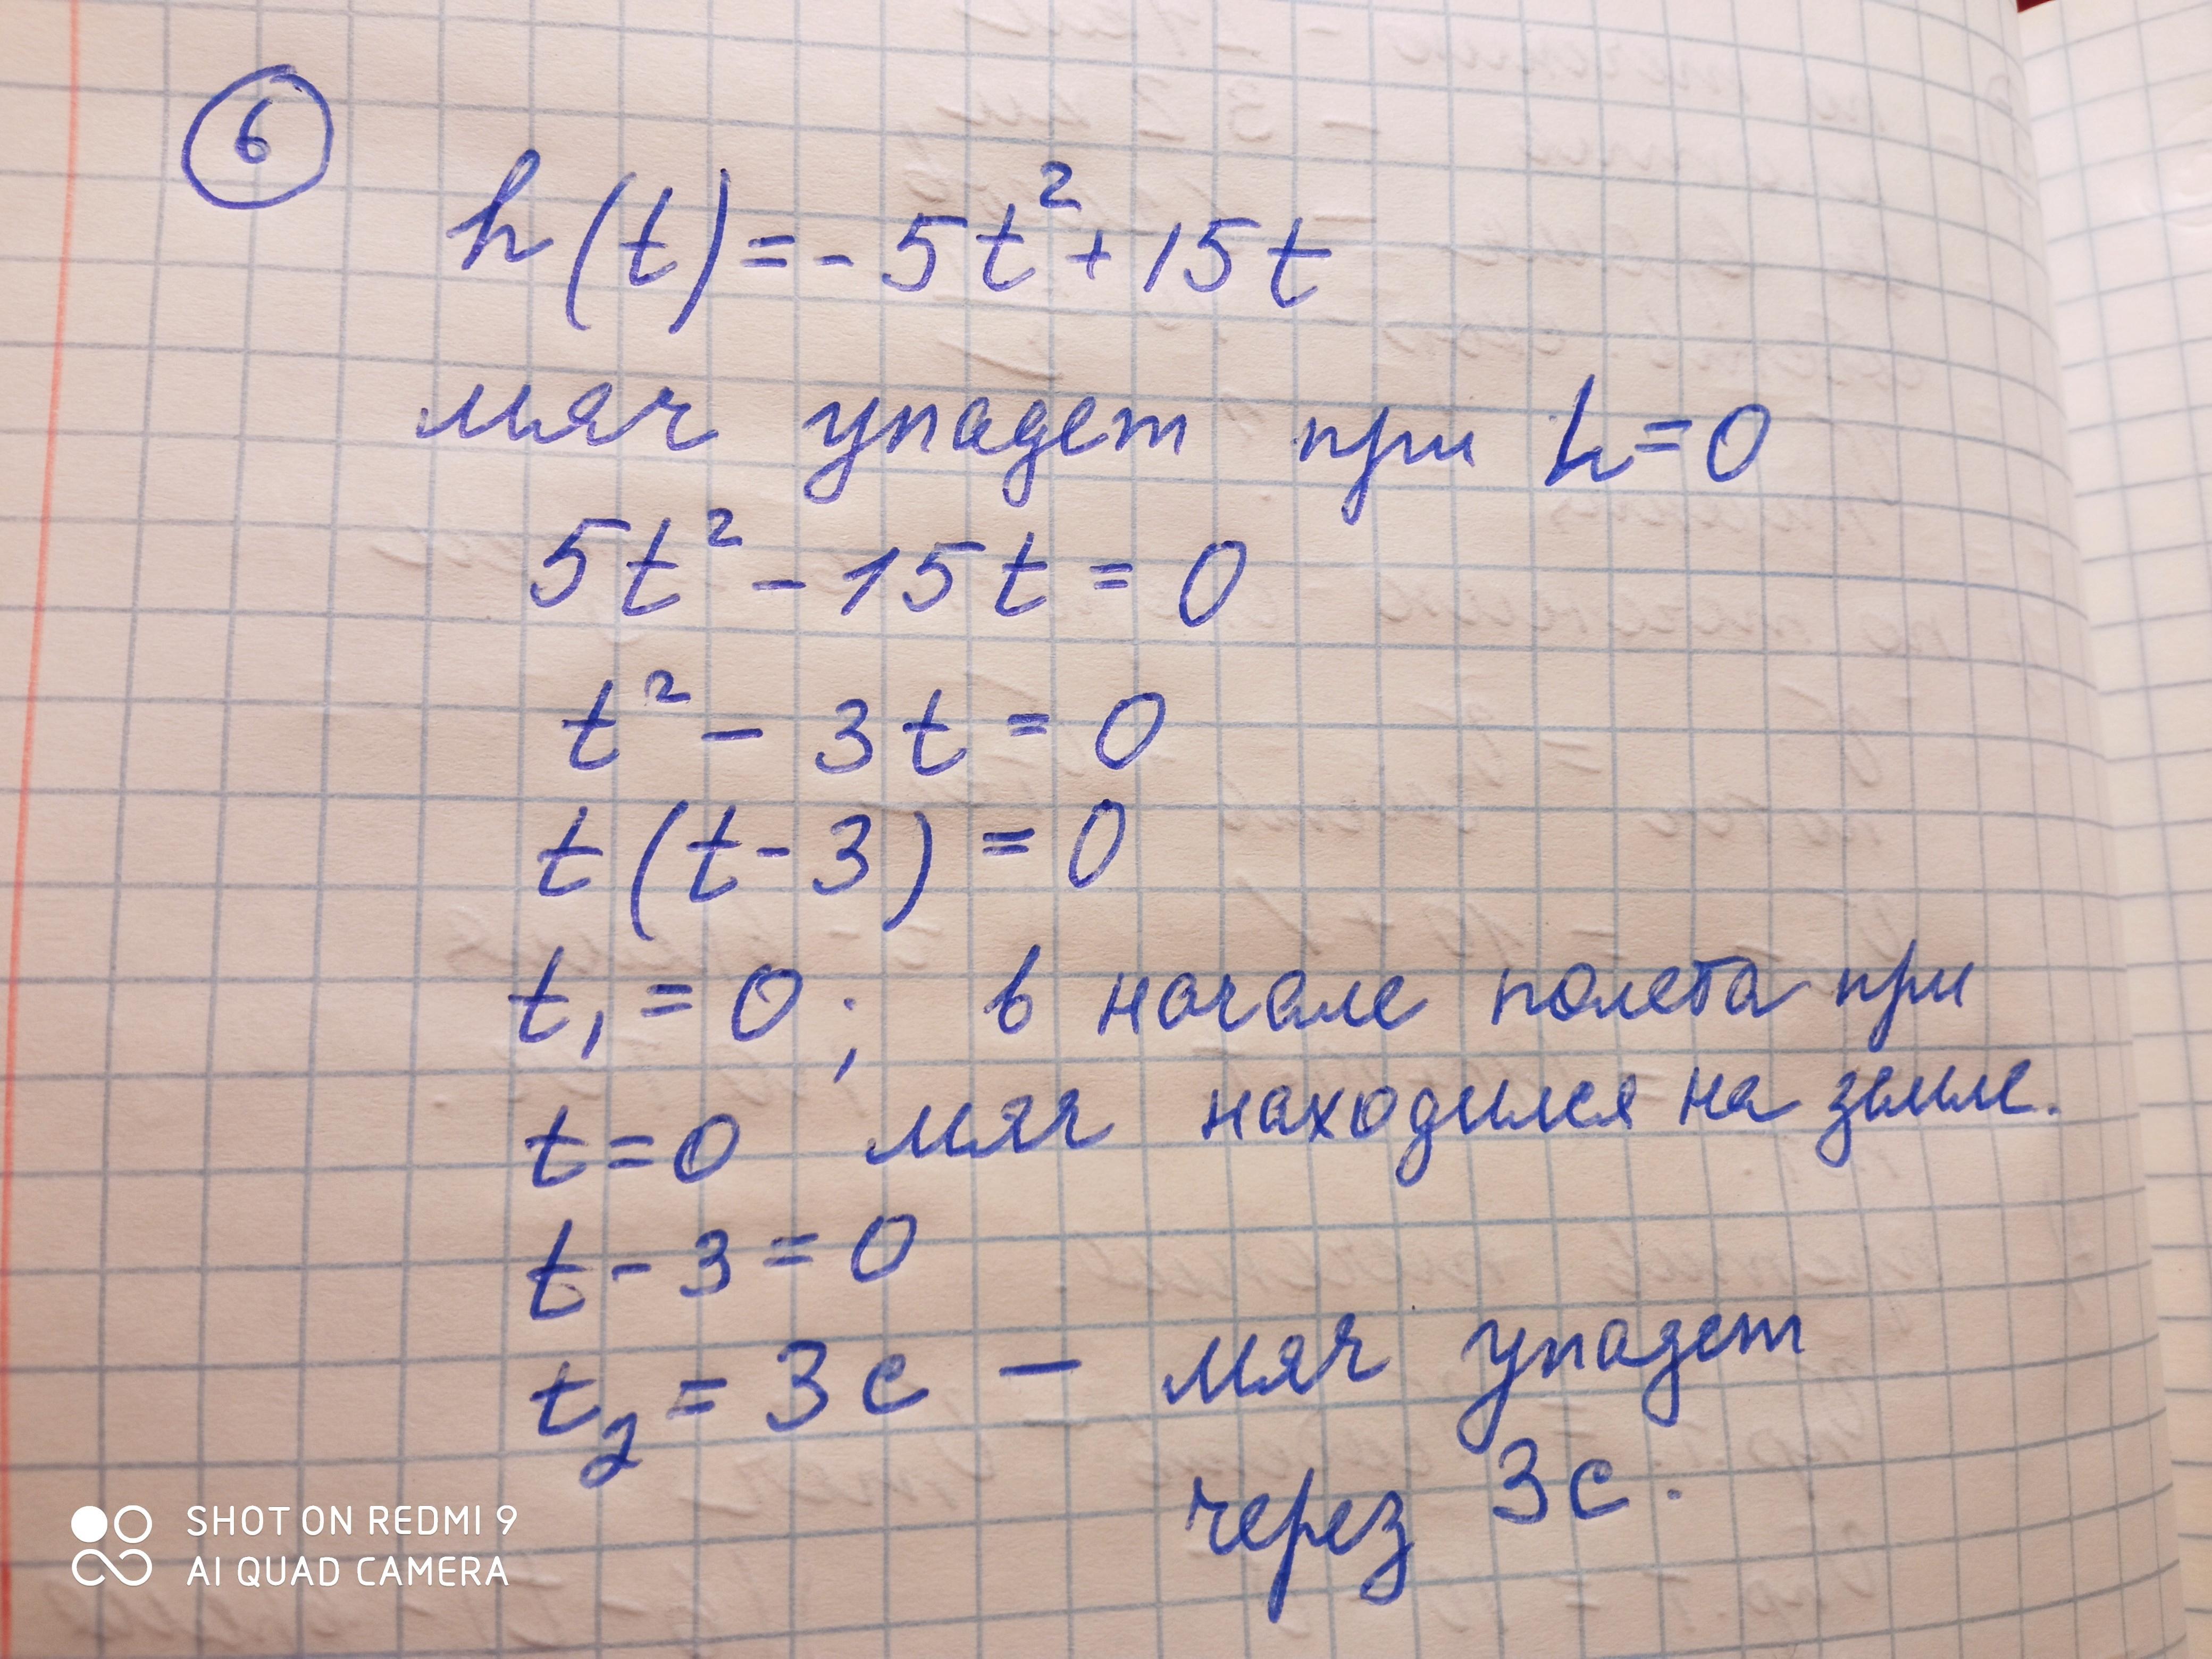 6
h(t)=-5t²+15t
мяч упадет при h=0
5t²-15t=0
t²-3t=0
t(t-3)=0
t₁=0; в начале полета при
t=0 мяч находился на земле.
t-3=0
t₂=3с — мяч упадет
через 3с.
SHOT ON REDMI 9
AI QUAD CAMERA